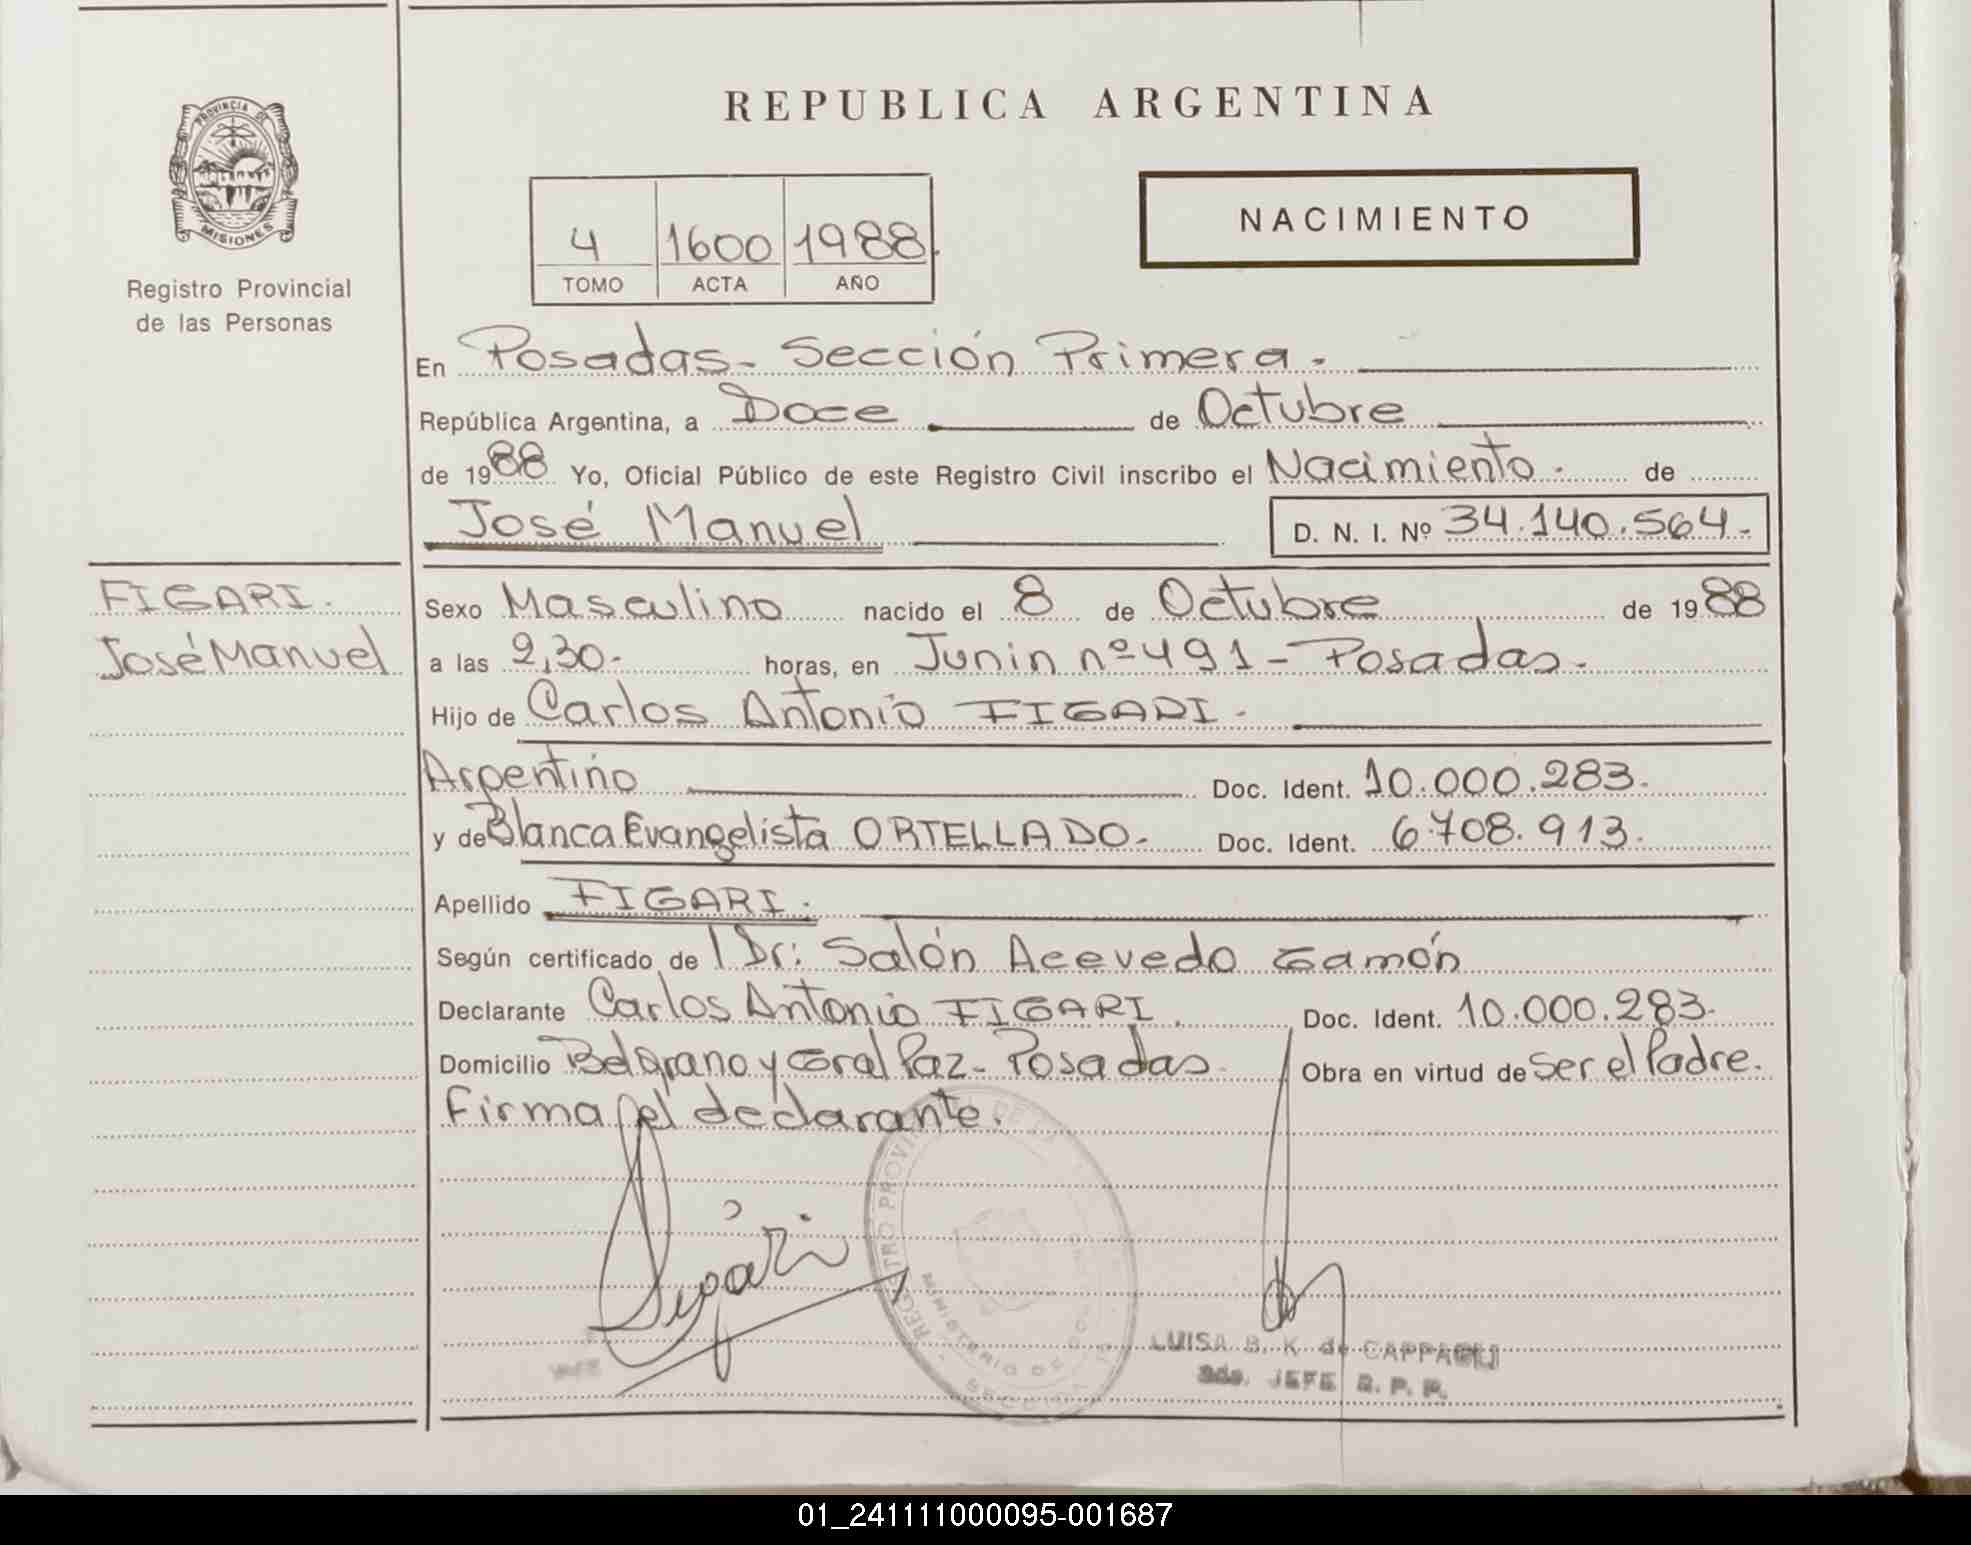 PROVINCIA DE
MISIONES
Registro Provincial
de las Personas
FIGARI.
José Manuel
REPUBLICA ARGENTINA
4 1600 1988
TOMO ACTA AÑO
NACIMIENTO
En Posadas - Sección Primera.
República Argentina, a Doce de Octubre
de 1988 Yo, Oficial Público de este Registro Civil inscribo el Nacimiento. de
José Manuel D. N. I. Nº 34.140.564.-
Sexo Masculino nacido el 8 de Octubre de 1988
a las 2,30.- horas, en Junin nº 491 - Posadas.
Hijo de Carlos Antonio FIGARI.
Argentino Doc. Ident. 10.000.283.
y de Blanca Evangelista ORTELLADO.- Doc. Ident. 6.708.913.
Apellido FIGARI.
Según certificado de l Dr: Salón Acevedo Gamón
Declarante Carlos Antonio FIGARI. Doc. Ident. 10.000.283.
Domicilio Belgrano y Gral Paz - Posadas Obra en virtud de Ser el Padre.
Firma del declarante.
Figari
REGISTRO PROVINCIAL DE LA
MINISTERIO DE
SECCION
LUISA B. K. de
JEFE R. P. P.
01_241111000095-001687